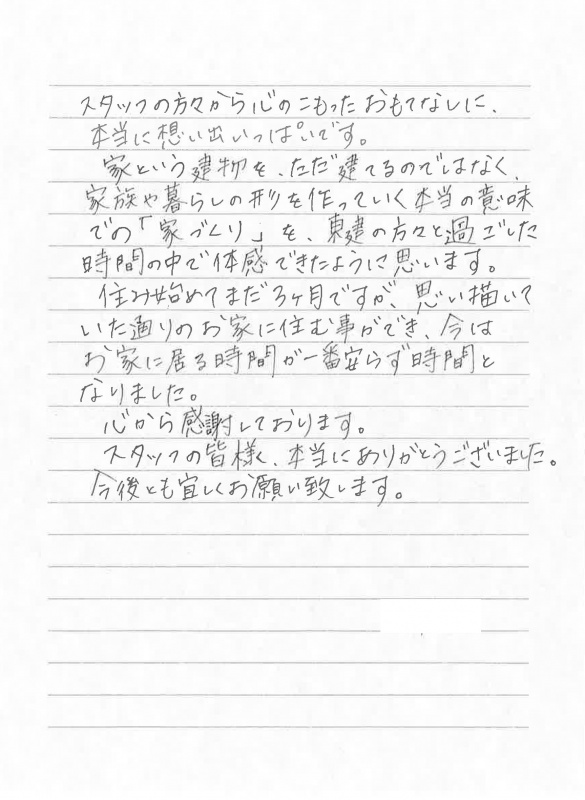 スタッフの方々から心のこもったおもてなしに、
本当に想い出いっぱいです。
家という建物を、ただ建てるのではなく、
家族や暮らしの形を作っていく本当の意味
での「家づくり」を、東建の方々と過ごした
時間の中で体感できたように思います。
住み始めてまだ3ヶ月ですが、思い描いて
いた通りのお家に住む事ができ、今は
お家に居る時間が一番安らず時間と
なりました。
心から感謝しております。
スタッフの皆様、本当にありがとうございました。
今後とも宜しくお願い致します。